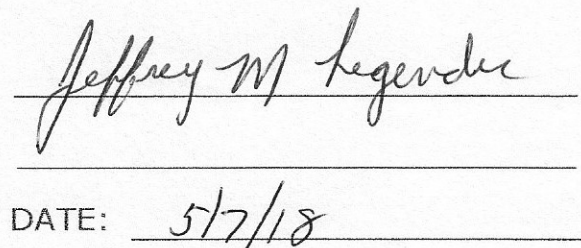 Jeffrey M Legendre
DATE: 5/7/18